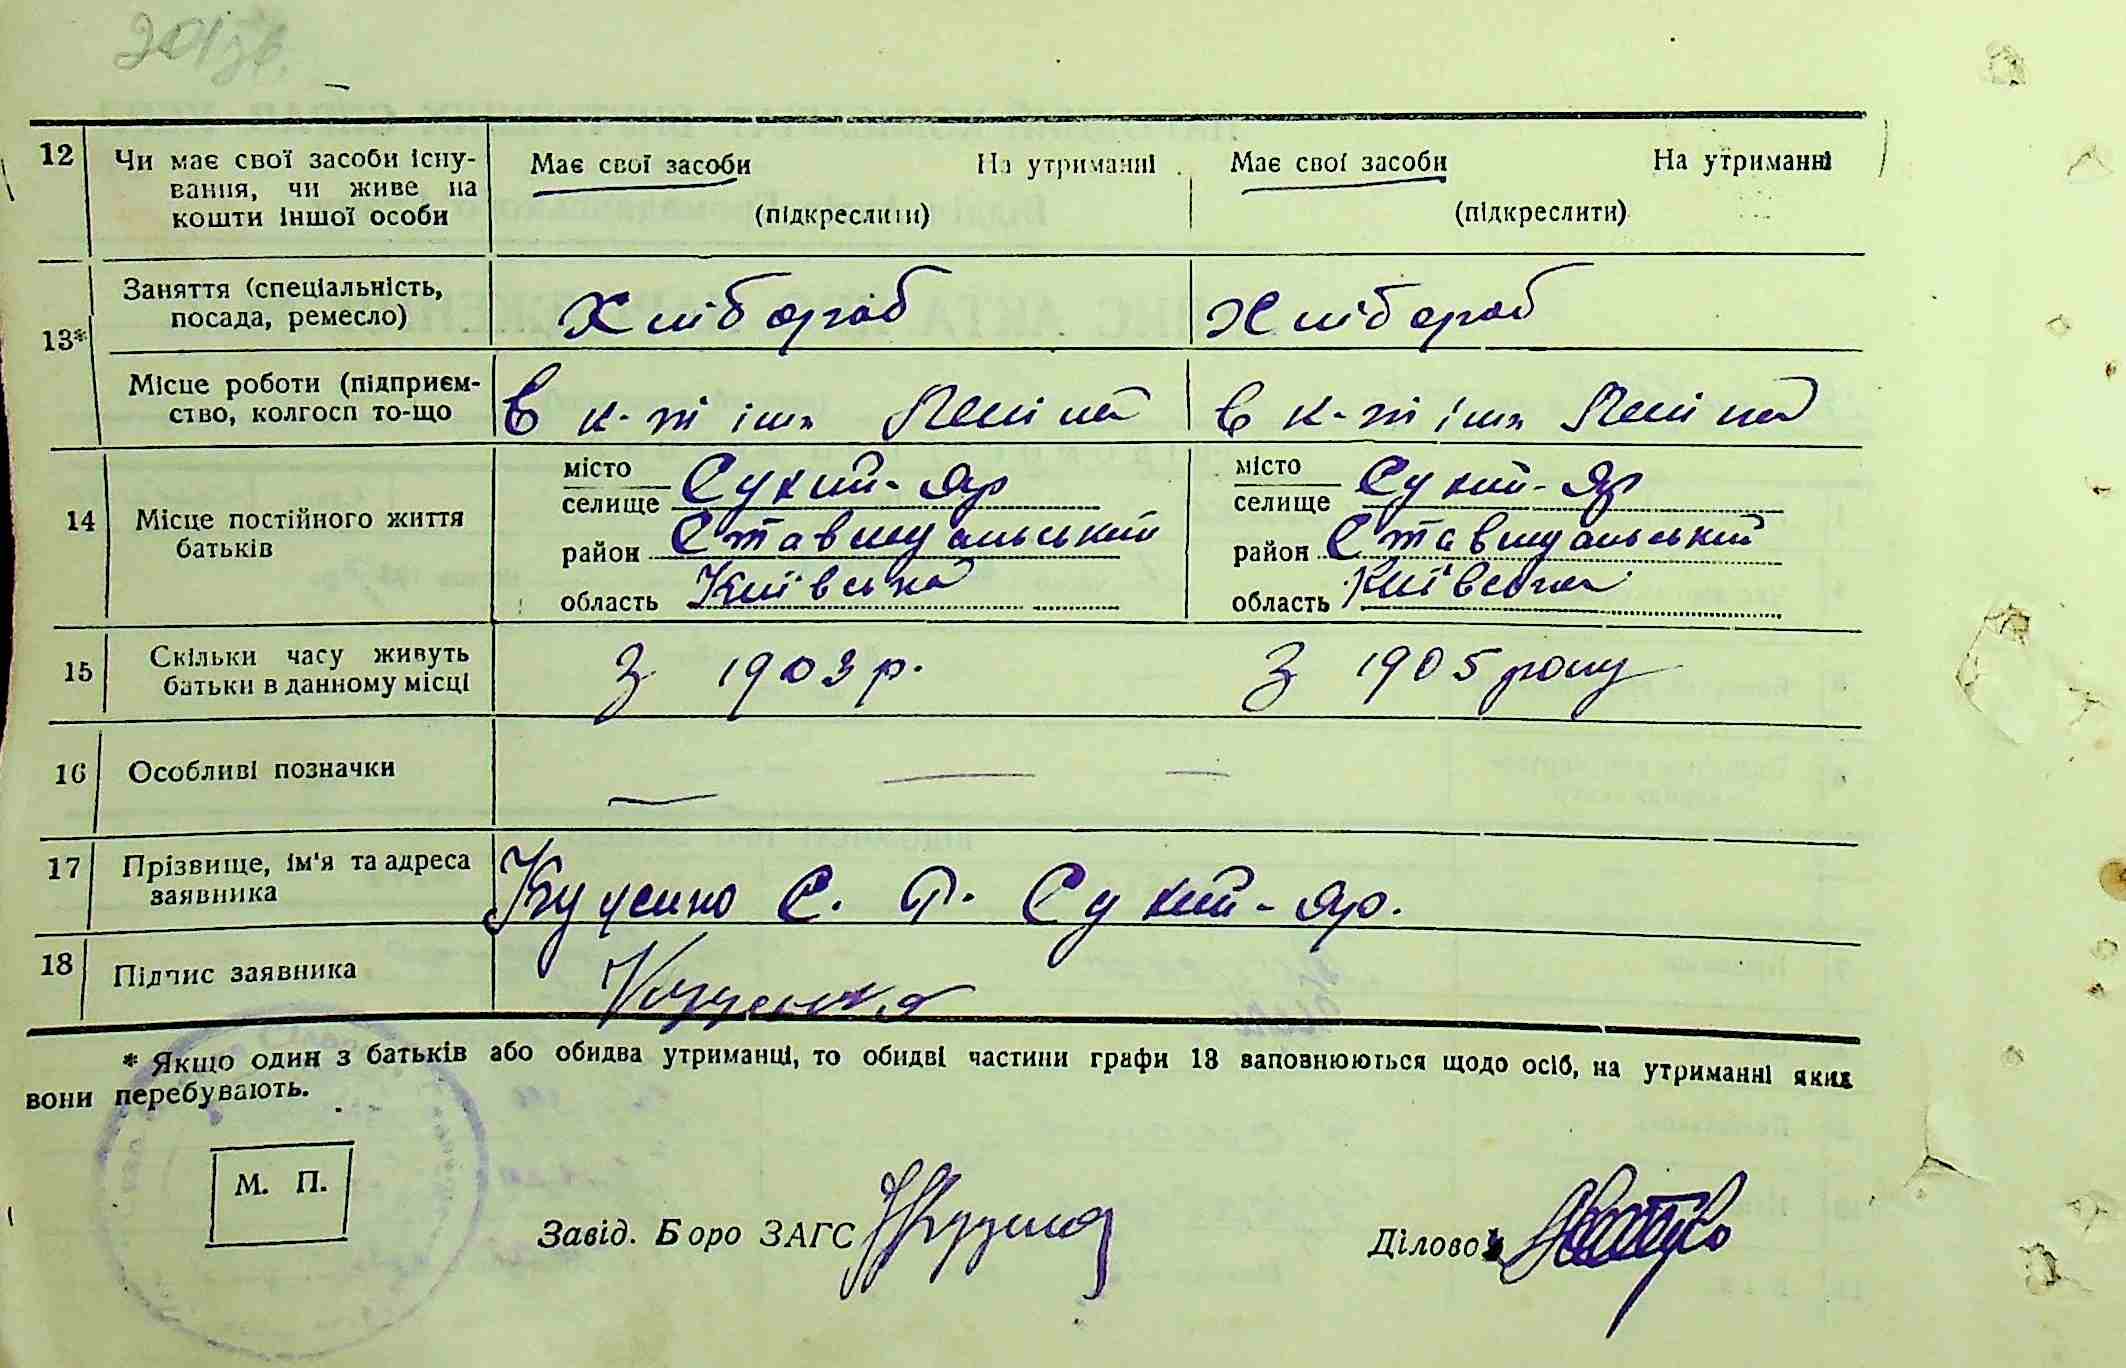 201зв.
12 Чи має свої засоби існу-
вання, чи живе на
кошти іншої особи
Має свої засоби На утриманні
(підкреслити)
Має свої засоби На утриманні
(підкреслити)
13*
Заняття (спеціальність,
посада, ремесло)
Хлібороб
Хлібороб
Місце роботи (підприєм-
ство, колгосп то-що
В к-ті імя Леніна
В к-ті імя Леніна
14 Місце постійного життя
батьків
місто
селище Сухий-Яр
район Ставищанський
область Київська
місто
селище Сухий-Яр
район Ставищанський
область Київська
15 Скільки часу живуть
батьки в данному місці
З 1903 р.
З 1905 року
16 Особливі позначки
17 Прізвище, ім'я та адреса
заявника
С. П. Сухий-Яр.
18 Підпис заявника
* Якщо один з батьків або обидва утриманці, то обидві частини графи 13 заповнюються щодо осіб, на утриманні яких
вони перебувають.
М. П.
Завід. Боро ЗАГС
Діловод